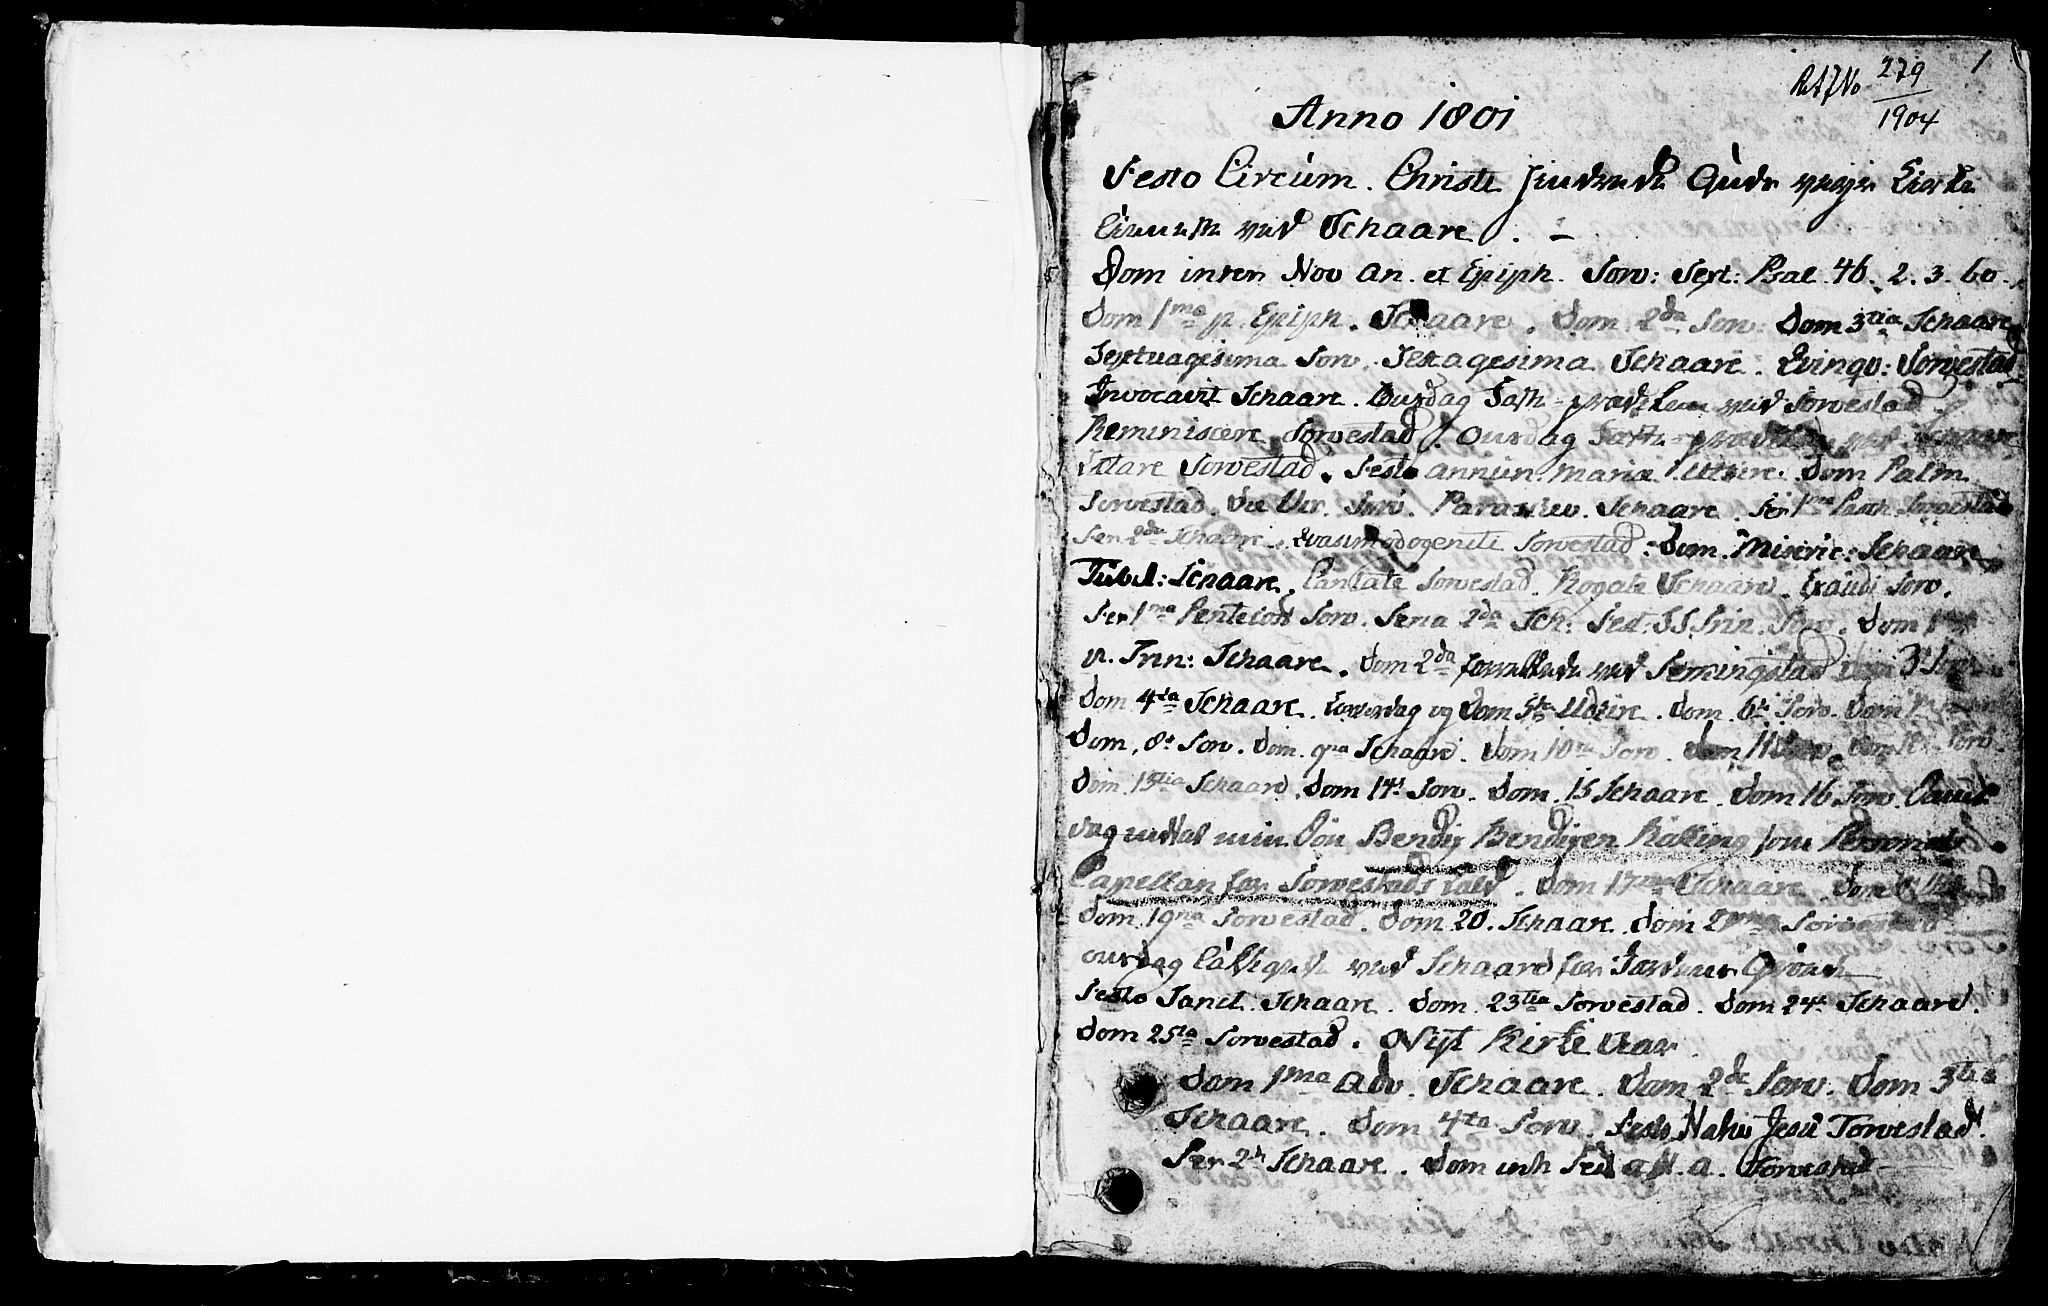 1
RAJNo 279
1904
Anno 1801
Festo Circum. Christi Gude nye Kirke
ved Schaare. -
Dom inter Nov An. et Epiph. Torv: Text: Psal 46. 2. 3. 60.
Dom 1ma p. Epiph. Schaare. Dom 2da Torv: Dom 3tia Schaare
Septuagesima Torv. Sexagesima Schaare. Qvinqv: Torvestad
Invocavit Schaare. Onsdag Faste-prædiken ved Torvestad.
Reminiscere Torvestad. Onsdag Faste-prædiken ved Schaare
Letare Torvestad. Festo annun: Mariæ Utsire. Dom Palm
Torvestad. Die Vir. Torv. Parascev. Schaare. Fer 1ma Pasch Torvestad
Fer 2da Schaare. Qvasimodogeniti Torvestad. Dom. Miseric: Schaare
Jubil: Schaare. Cantate Torvestad. Rogate Schaare. Exaudi Torv.
Fer 1ma Pentecost Torv. Feria 2da Sch: Fest. SS. Trin. Torv. Dom 1ma
p. Trin: Schaare. Dom 2da forrettede ved Femingstad Dom 3 Torv.
Dom 4ta Schaare. Løverdag og Dom 5te Udsire. Dom. 6te Torv. Dom 7
Dom. 8t Torv. Dom. 9na Schaare. Dom 10ma Torv. Dom 11 Dom 12 Torv.
Dom. 13tia Schaare. Dom 14t Torv. Dom. 15 Schaare. Dom 16 Torv.
min Søn Bendix Bendixen Kalling som Personel
Capellan for Torvestads Kald. Dom 17ma Schaare. Dom
Dom. 19na Torvestad. Dom 20. Schaare. Dom 21ma Torvestad.
onsdag ved Schaare for
Festo Sanct. Schaare. Dom. 23tia Torvestad. Dom 24t Schaare.
Dom 25ta Torvestad. Nyt Kirke Aar.
Dom 1ma Adv. Schaare. Dom 2de Torv. Dom 3tia
Schaare. Dom 4ta Torv. Festo Nativ Jesu Torvestad.
Fer 2de Schaare. Dom inter Fest a N. a. Torvestad